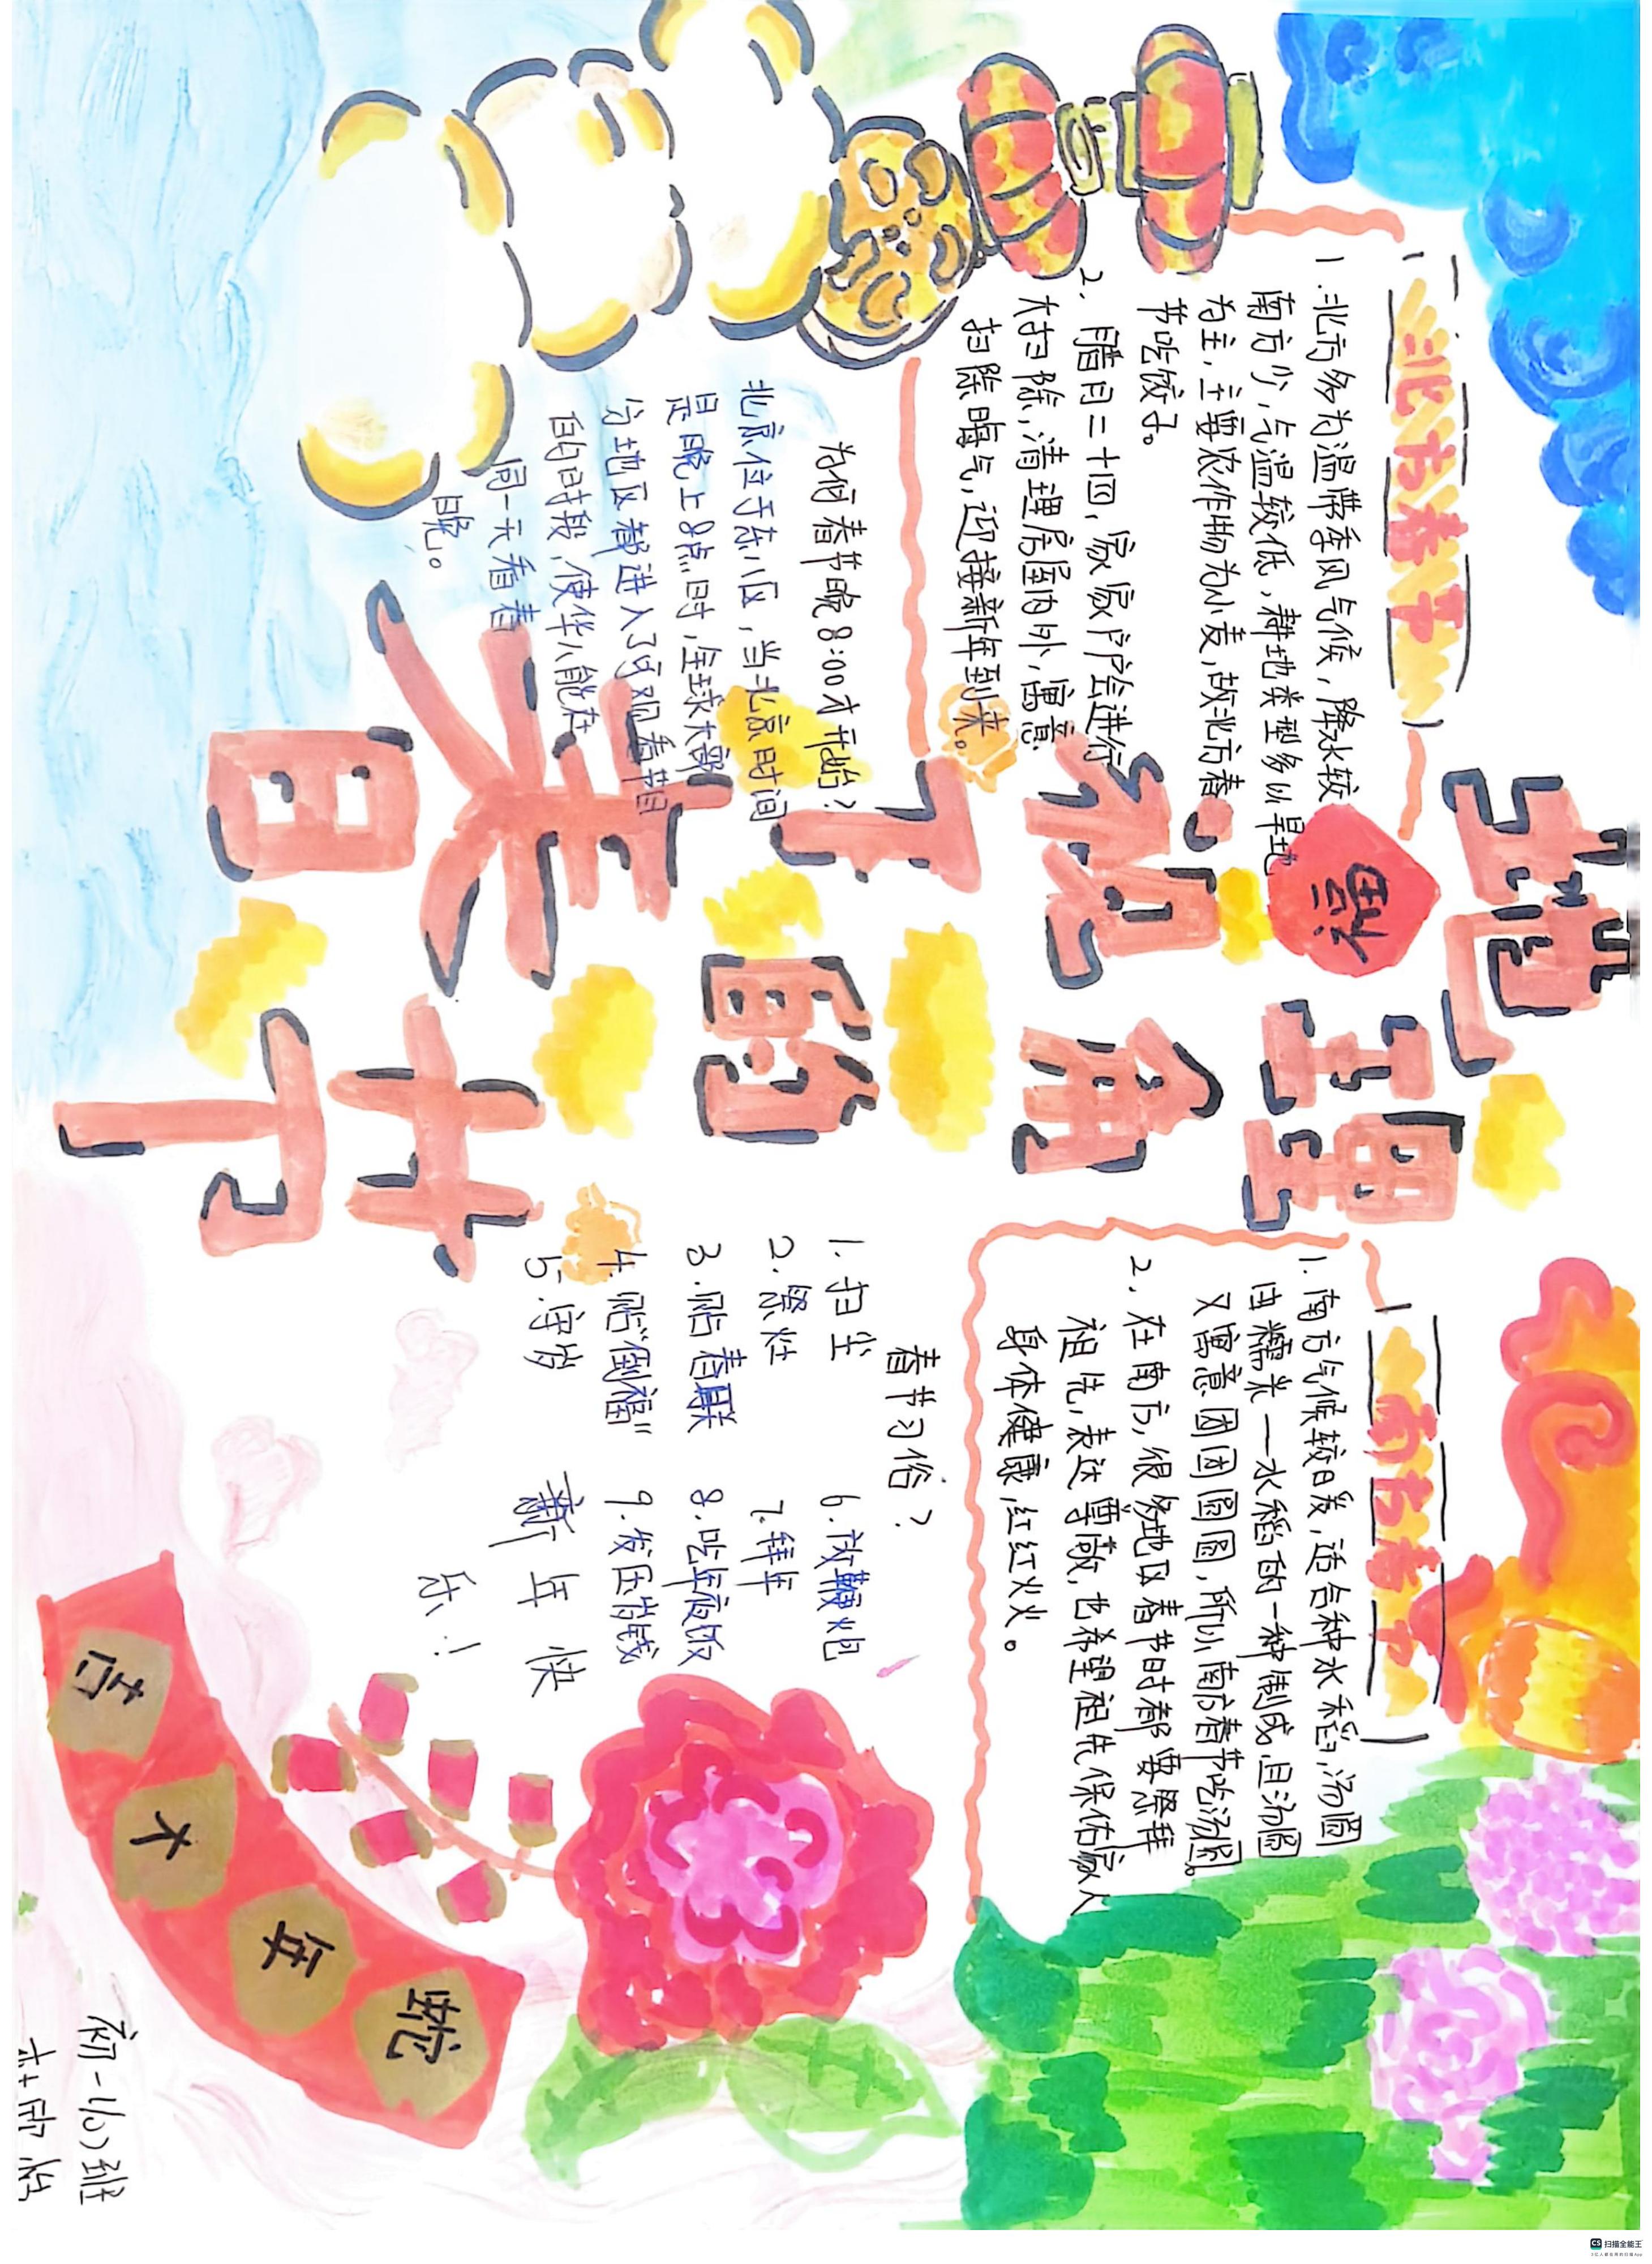 地理角
祝
了的
春节
春节
福
北方春节
1.北方多为温带季风气候，降水较
南方少，气温较低，耕地类型多以旱地
为主，主要农作物为小麦，故北方春
节吃饺子。
2.腊月二十四，家家户户会进行
大扫除，清理房屋内外，寓意
扫除晦气，迎接新年到来。
南方春节
1.南方气候较暖，适合种水稻，汤圆
由糯米——水稻的一种制成，且汤圆
又寓意团团圆圆，所以南方春节吃汤圆。
2.在南方，很多地区春节时都要祭拜
祖先，表达尊敬，也希望祖先保佑家人
身体健康，红红火火。
为何春节晚8:00才开始？
北京位于东八区，当北京时间
是晚上8点时，全球大部
分地区都进入了可观看节目
的时段，使华人能在
同一天看春
晚。
春节习俗？
1.扫尘
2.祭灶
3.贴春联
4.贴“倒福”
5.守岁
6.放鞭炮
7.拜年
8.吃年夜饭
9.发压岁钱
新年快
乐！
蛇年大吉
初一(10)班
扫描全能王